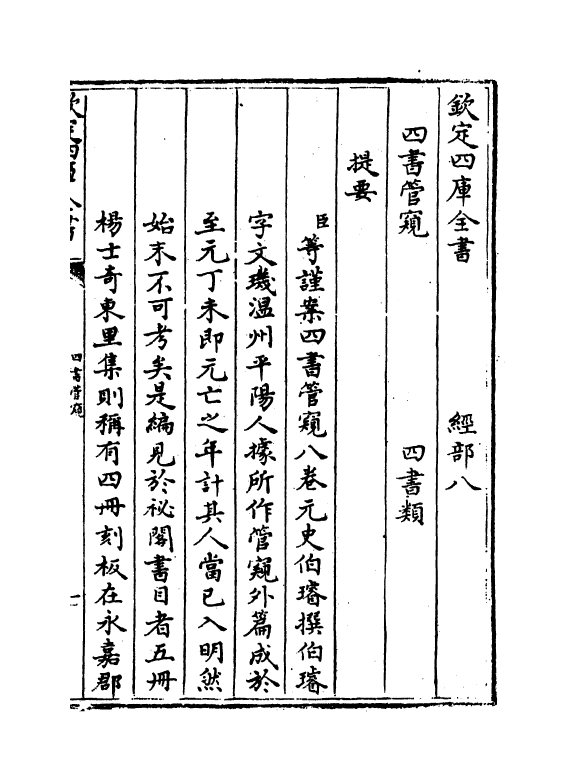 欽定四庫全書　經部八
四書管窺　四書類
提要
臣等謹案四書管窺八卷元史伯璿撰伯璿
字文璣温州平陽人據所作管窺外篇成於
至元丁未即元亡之年計其人當已入明然
始末不可考矣是編見於祕閣書目者五冊
楊士奇東里集則稱有四冊刻板在永嘉郡
欽定四庫全書
四書管窺
一